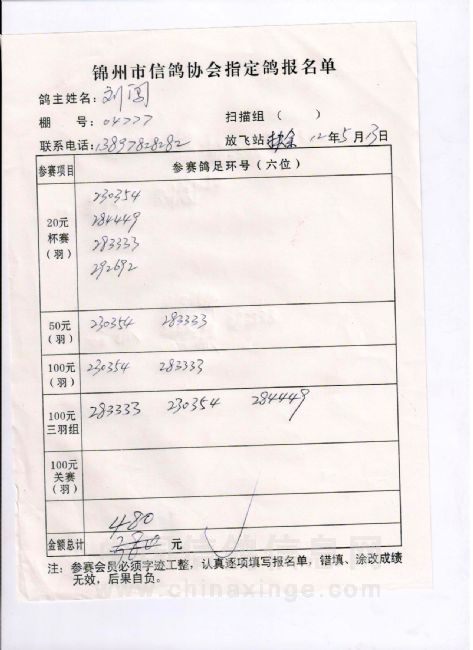 锦州市信鸽协会指定鸽报名单
鸽主姓名：刘闯
棚　号：04777　扫描组（　）
联系电话：13897828282　放飞站 扶余 12年5月13日
参赛项目　参赛鸽足环号（六位）
20元
杯赛
（羽）
230354
284449
283333
292692
50元
（羽）
230354　283333
100元
（羽）
230354　283333
100元
三羽组
283333　230354　284449
100元
关赛
（羽）
480
金额总计　380 元
注：参赛会员必须字迹工整，认真逐项填写报名单，错填、涂改成绩
无效，后果自负。
www.chinaxinge.com